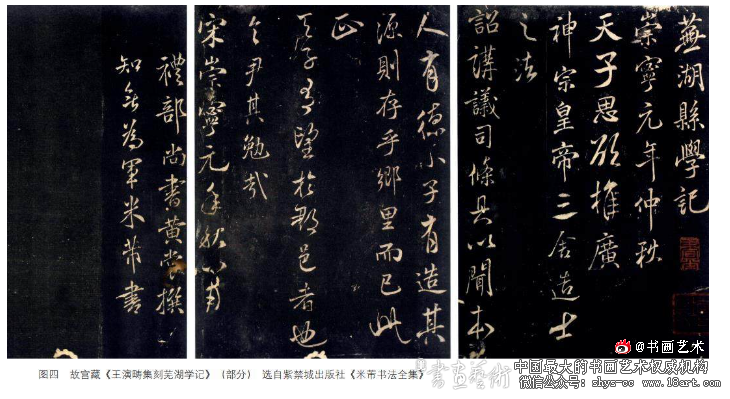 蕪湖縣學記
崇寧元年仲秋
天子思欲推廣
神宗皇帝三舍造士
之法
詔講議司條具以聞本
人有德小子有造其
源則存乎鄉里而已此
正
天子有望於郡邑者也
令尹其勉哉
宋崇寧元年秋八月
禮部尚書黃裳撰
知無為軍米芾書
图四 故宫藏《王演畴集刻芜湖学记》(部分) 选自紫禁城出版社《米芾书法全集》
@书画艺术
書畫藝術
中国最大的书画艺术权威机构
微信公众号: shys-cc www.18art.com